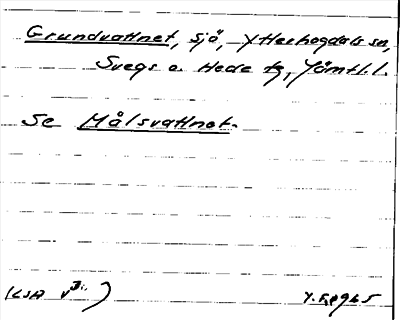 Grundvattnet, sjö, Ytterhogdals sn,
Svegs o. Hede tg, Jämtl. l.
Se Målsvattnet.
(LSA